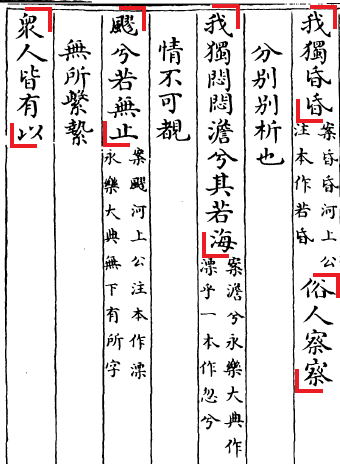 我獨昏昏案昏昏河上公注本作若昏俗人察察
分別別析也
我獨悶悶澹兮其若海案澹兮永樂大典作漂乎一本作忽兮
情不可覩
飂兮若無止案飂河上公注本作漂永樂大典無下有所字
無所繫縶
衆人皆有以